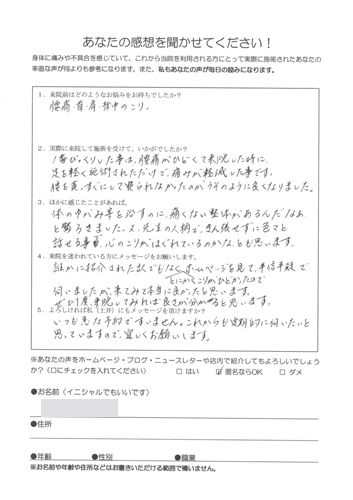 あなたの感想を聞かせてください！
身体に痛みや不具合を感じていて、これから当院を利用される方にとって実際に施術されたあなたの
率直な声が何よりも参考になります。また、私もあなたの声が毎日の励みになります。
1．来院前はどのようなお悩みをお持ちでしたか？
腰痛・首・肩・背中のこり。
2．実際に来院して施術を受けて、いかがでしたか？
1番びっくりした事は、腰痛がひどくて来院した時に、
足を軽く施術されただけで、痛みが軽減した事です。
腰を真っすぐにして寝られなかったのがうそのように良くなりました。
3．ほかに感じたことがあれば、
体のゆがみ等を治すのに、痛くない整体があるんだなあ
と驚きました。又、先生の人柄で、きん張せずに色々と
話せる事で、心のこりがほぐれているのかな、とも思います。
4．来院を迷われている方にメッセージをお願いします。
誰かに紹介された訳でもなく、ホームページを見て、半信半疑で
とにかくこりがひどかったので
伺いましたが、来てみて本当に良かったと思います。
ぜひ1度、来院してみれば良さが分かると思います。
5．よろしければ私（土井）にもメッセージを頂けますか？
いつも急な予約ですいません。これからも定期的に伺いたいと
思っていますので、宜しくお願いします。
※あなたの声をホームページ・ブログ・ニュースレターや店内で紹介してもよろしいでしょう
か？（□にチェックを入れてください） □ はい ☑ 匿名ならOK □ ダメ
●お名前（イニシャルでもいいです）
●住所
●年齢 ●性別 ●職業
※お名前や年齢や住所などはお書きいただける範囲で構いません。